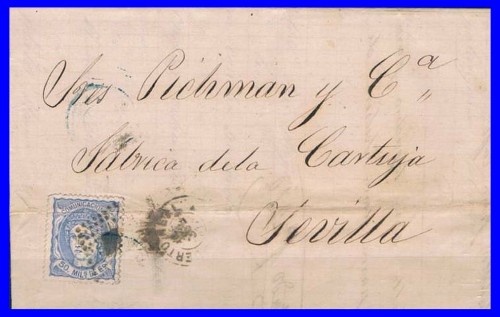 Sres Pichman y Cª
Fabrica de la Cartuja
Sevilla
COMUNICACIONES
50 MILS DE E